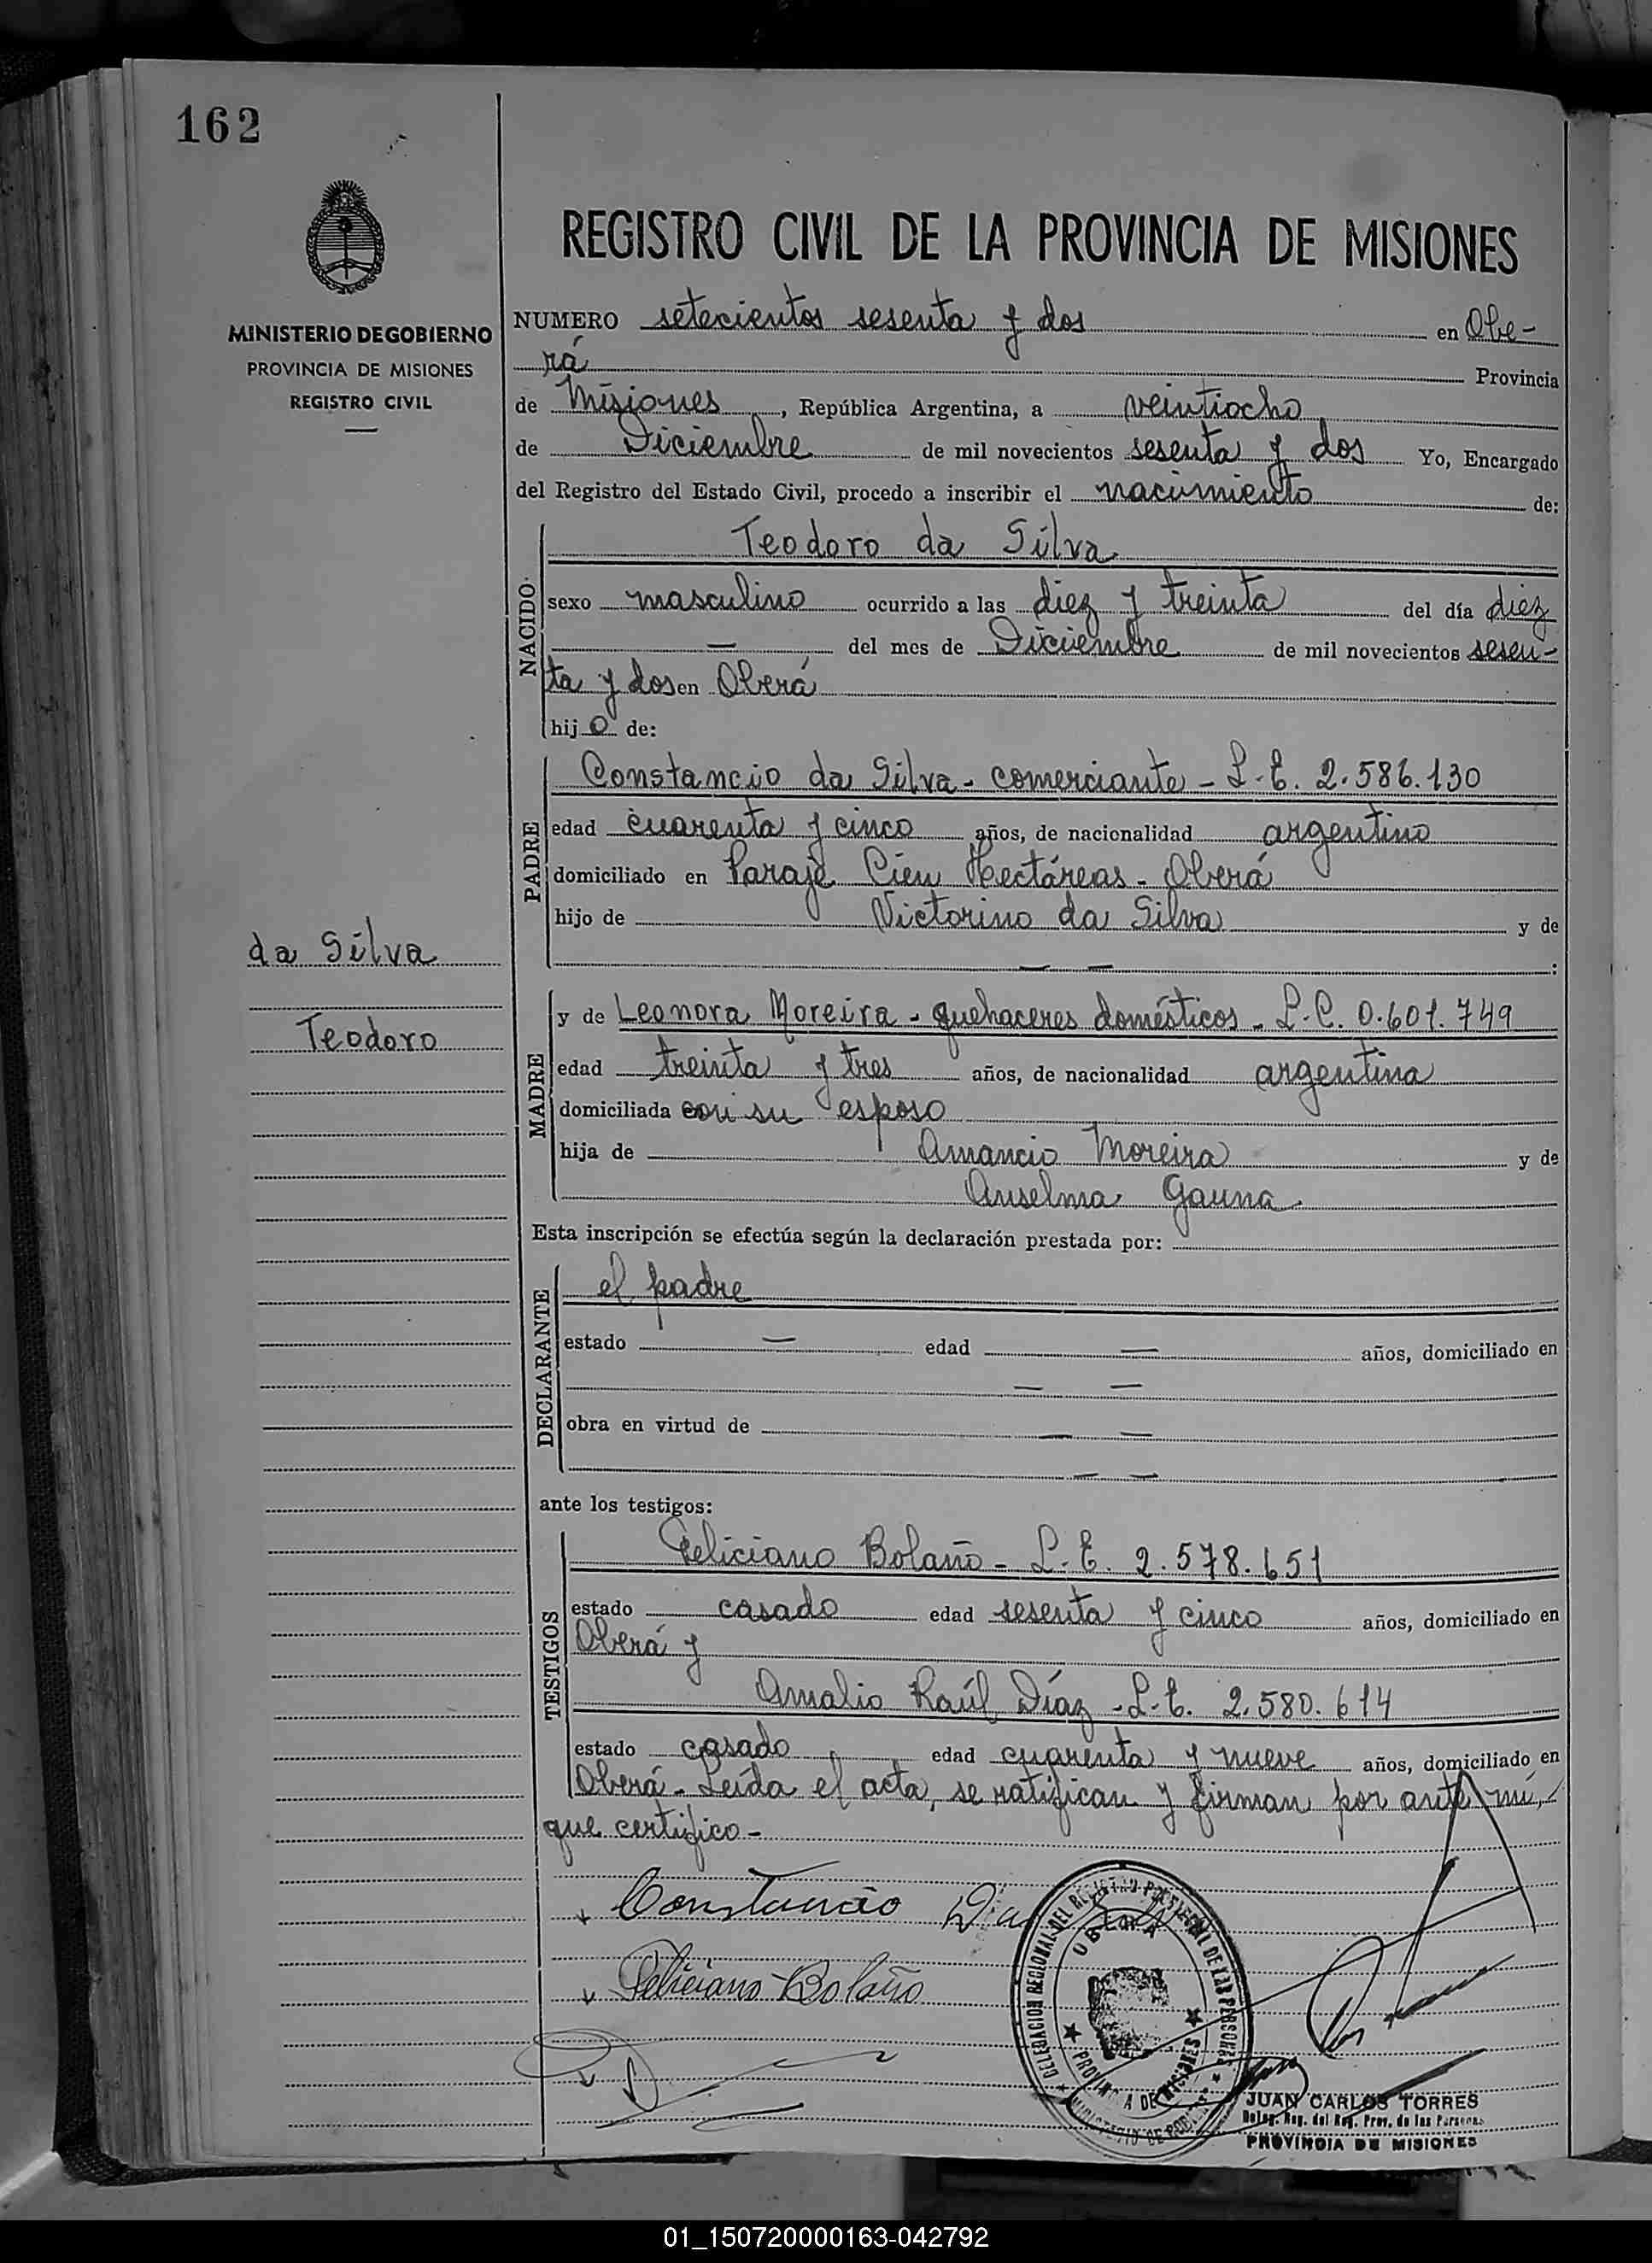 162
MINISTERIO DE GOBIERNO
PROVINCIA DE MISIONES
REGISTRO CIVIL
REGISTRO CIVIL DE LA PROVINCIA DE MISIONES
NUMERO setecientos sesenta y dos en Obe-
rá Provincia
de Misiones, República Argentina, a veintiocho
de Diciembre de mil novecientos sesenta y dos Yo, Encargado
del Registro del Estado Civil, procedo a inscribir el nacimiento de:
NACIDO
Teodoro da Silva
sexo masculino ocurrido a las diez y treinta del día diez
— del mes de Diciembre de mil novecientos sesen-
ta y dos en Oberá
hijo de:
PADRE
Constancio da Silva - comerciante - L.E. 2.586.130
edad cuarenta y cinco años, de nacionalidad argentino
domiciliado en Paraje Cien Hectáreas - Oberá
hijo de Victorino da Silva y de
— — :
da Silva
Teodoro
MADRE
y de Leonora Moreira - quehaceres domésticos - L.C. 0.601.749
edad treinta y tres años, de nacionalidad argentina
domiciliada con su esposo
hija de Amancio Moreira y de
Anselma Gauna
Esta inscripción se efectúa según la declaración prestada por:
DECLARANTE
el padre
estado — edad — años, domiciliado en
— —
obra en virtud de — —
— —
ante los testigos:
TESTIGOS
Feliciano Bolaño - L.E. 2.578.651
estado casado edad sesenta y cinco años, domiciliado en
Oberá y
Amalio Raúl Díaz - L.E. 2.580.614
estado casado edad cuarenta y nueve años, domiciliado en
Oberá - Leída el acta, se ratifican y firman por ante mí,
que certifico -
Constancio
Feliciano Bolaño
DELEGACION REGIONAL DEL REGISTRO PROVINCIAL DE LAS PERSONAS
OBERA
PROVINCIA DE MISIONES
JUAN CARLOS TORRES
Deleg. Reg. del Reg. Prov. de las Personas
PROVINCIA DE MISIONES
01_150720000163-042792